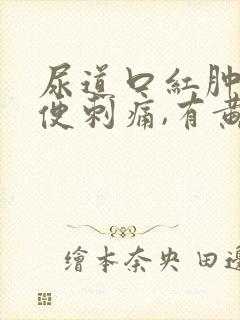 尿道口紅肿
便刺痛,有黄
繪本奈央 田邊